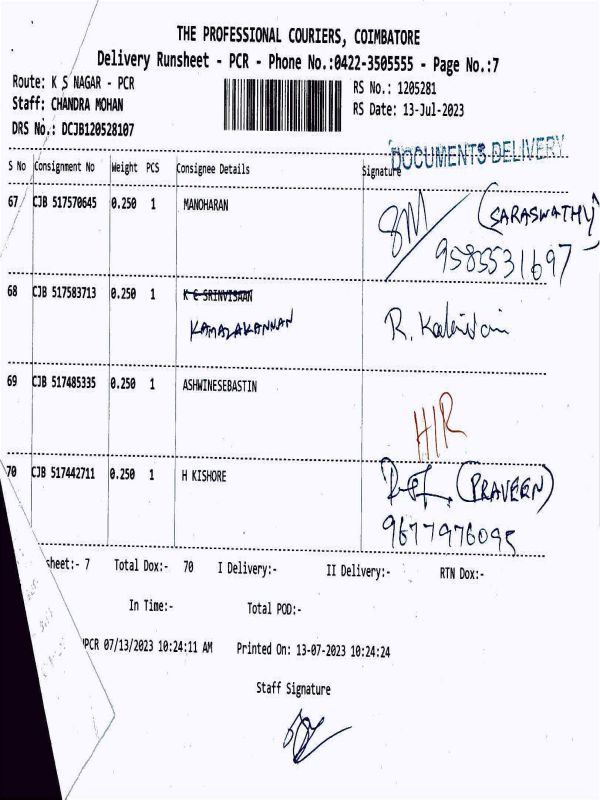 THE PROFESSIONAL COURIERS, COIMBATORE
Delivery Runsheet - PCR - Phone No.:0422-3505555 - Page No.:7
Route: K S NAGAR - PCR RS No.: 1205281
Staff: CHANDRA MOHAN RS Date: 13-Jul-2023
DRS No.: DCJB120528107
DOCUMENTS DELIVERY
S No Consignment No Weight PCS Consignee Details Signature
67 CJB 517570645 0.250 1 MANOHARAN
(SARASWATHY)
9585531697
68 CJB 517583713 0.250 1 K C SRINVISAAN
KAMALAKANNAN R.
69 CJB 517485335 0.250 1 ASHWINESEBASTIN
70 CJB 517442711 0.250 1 H KISHORE
(PRAVEEN)
9677976095
sheet:- 7 Total Dox:- 70 I Delivery:- II Delivery:- RTN Dox:-
In Time:- Total POD:-
PCR 07/13/2023 10:24:11 AM Printed On: 13-07-2023 10:24:24
Staff Signature